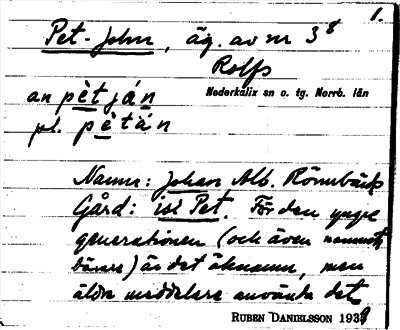 1.
Pet-John, äg. av nr 3⁸
Rolfs
Nederkalix sn o. tg. Norrb. län
an pètján
pl. pètán
Namn: Johan Alb. Rönnbäck
Gård: isl Pet. För den yngre
generationen (och även namnets
bärare) är det öknamn, men
äldre meddelare använda det
RUBEN DANIELSSON 193